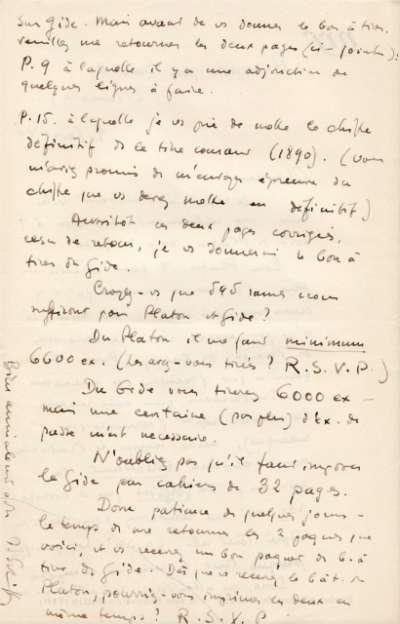 sur Gide. Mais avant de vs donner le bon à tirer,
veuillez me retourner les deux pages (ci-jointes) :
P. 9 à laquelle il y a une adjonction de
quelques lignes à faire.
P. 15. à laquelle je vs prie de mettre le chiffre
définitif de le titre courant (1890). (vous
m'aviez promis de m'envoyer épreuve du
chiffre que vs devez mettre en définitif)
Aussitôt ces deux pages corrigées,
de retour, je vs donnerai le bon à
tirer du Gide.
Croyez-vs que 545 rames nous
suffiront pour Platon et Gide ?
Du Platon il me faut minimum
6600 ex. (les avez-vous tirés ? R. S. V. P.)
Du Gide vous tirerez 6000 ex –
mais une centaine (pas plus) d'ex. de
presse m'est nécessaire.
N'oubliez pas qu'il faut imposer
le Gide par cahiers de 32 pages.
Donc patience de quelques jours –
le temps de me retourner les 2 pages que
voici, et vs recevrez un bon paquet de b. à
tirer de Gide. Dès que recevrez le b. à t. du
Platon, pourriez-vous imprimer les deux en
même temps ? R. S. V. P.
Bien amicalement